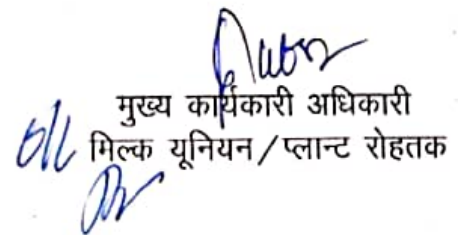 मुख्य कार्यकारी अधिकारी
मिल्क यूनियन/प्लान्ट रोहतक